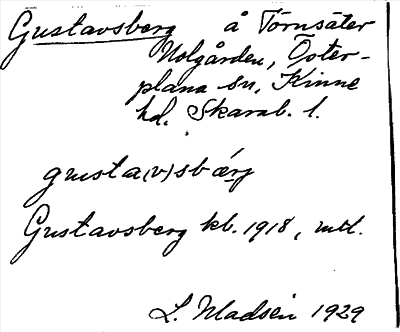 Gustavsberg å Törnsäter
Nolgården, Öster-
plana sn, Kinne
hd. Skarab. l.
gusta(v)sbærj
Gustavsberg kb. 1918, mtl.
L. Madsen 1929